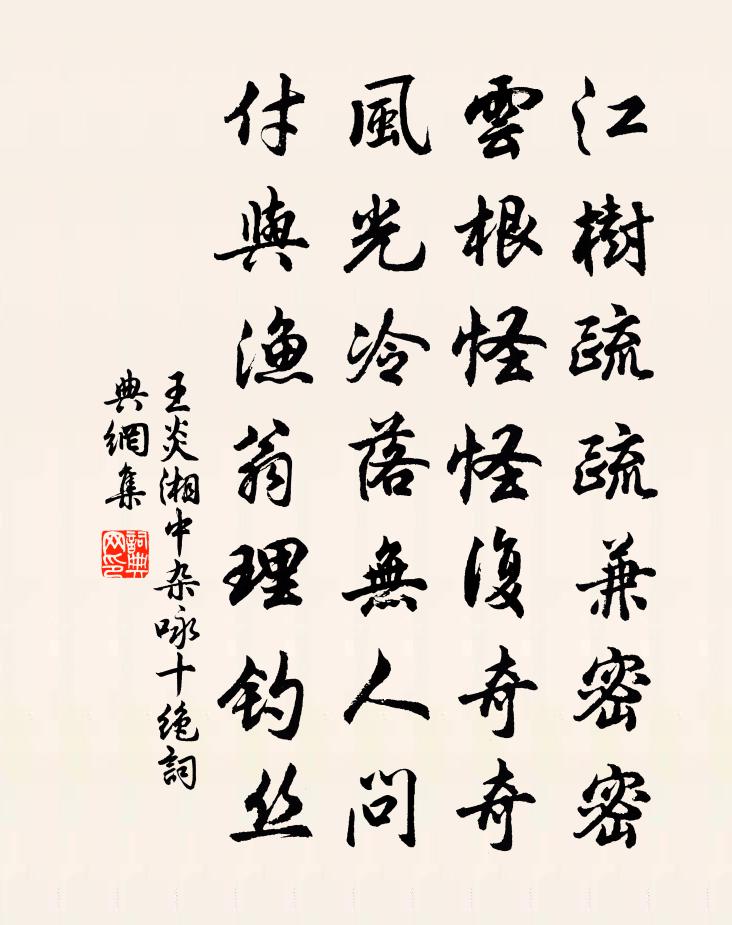 江樹疏疏兼密密
雲根怪怪復奇奇
風光冷落無人問
付與漁翁理钓丝
王炎湘中杂咏十绝詞
典網集
詞典
网印